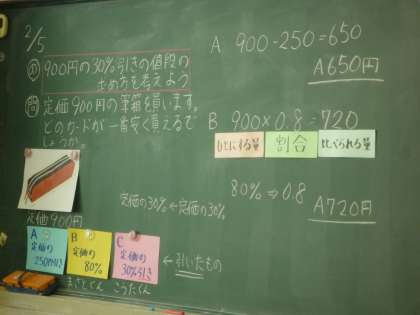 2/5
め 900円の30%引きの値段の
求め方を考えよう
問 定価900円の筆箱を買います。
どのカードが一番安く買えるで
しょうか。
定価900円
A
定価の
250円引き
B
定価の
80%
C
定価の
30%引き
←引いたもの
まさとくん こうたくん
定価の30%←定価の30%
A 900-250=650
A650円
B 900×0.8=720
もとにする量 割合 比べられる量
80%⇒0.8
A720円